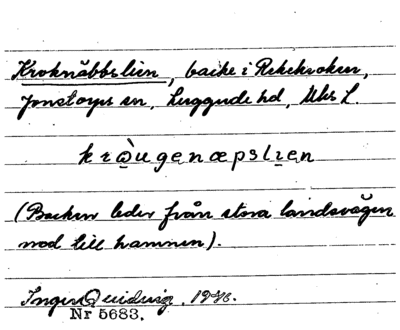 Kroknäbbslien, backe i Rekekroken,
Jonstorps sn, Luggude hd, Mhs L.
krạ̊ugenæpslıen
(Backen leder från stora landsvägen
ned till hamnen).
Inger Quiding. 1946.
Nr 5683.